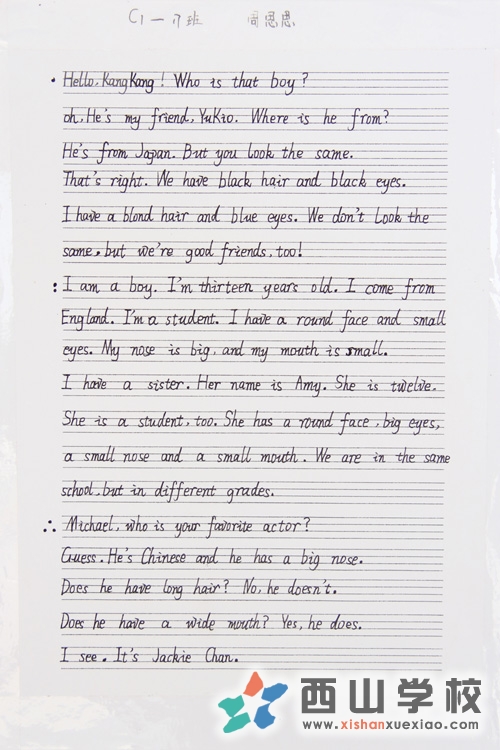 C1-17班 周思思
Hello, KangKang! Who is that boy?
oh, He's my friend, YuKio. Where is he from?
He's from Japan. But you look the same.
That's right. We have black hair and black eyes.
I have a blond hair and blue eyes. We don't look the
same, but we're good friends, too!
: I am a boy. I'm thirteen years old. I come from
England. I'm a student. I have a round face and small
eyes. My nose is big, and my mouth is small.
I have a sister. Her name is Amy. She is twelve.
She is a student, too. She has a round face, big eyes,
a small nose and a small mouth. We are in the same
school, but in different grades.
∴ Michael, who is your favorite actor?
Guess. He's Chinese and he has a big nose.
Does he have long hair? No, he doesn't.
Does he have a wide mouth? Yes, he does.
I see. It's Jackie Chan.
西山学校
www.xishanxuexiao.com